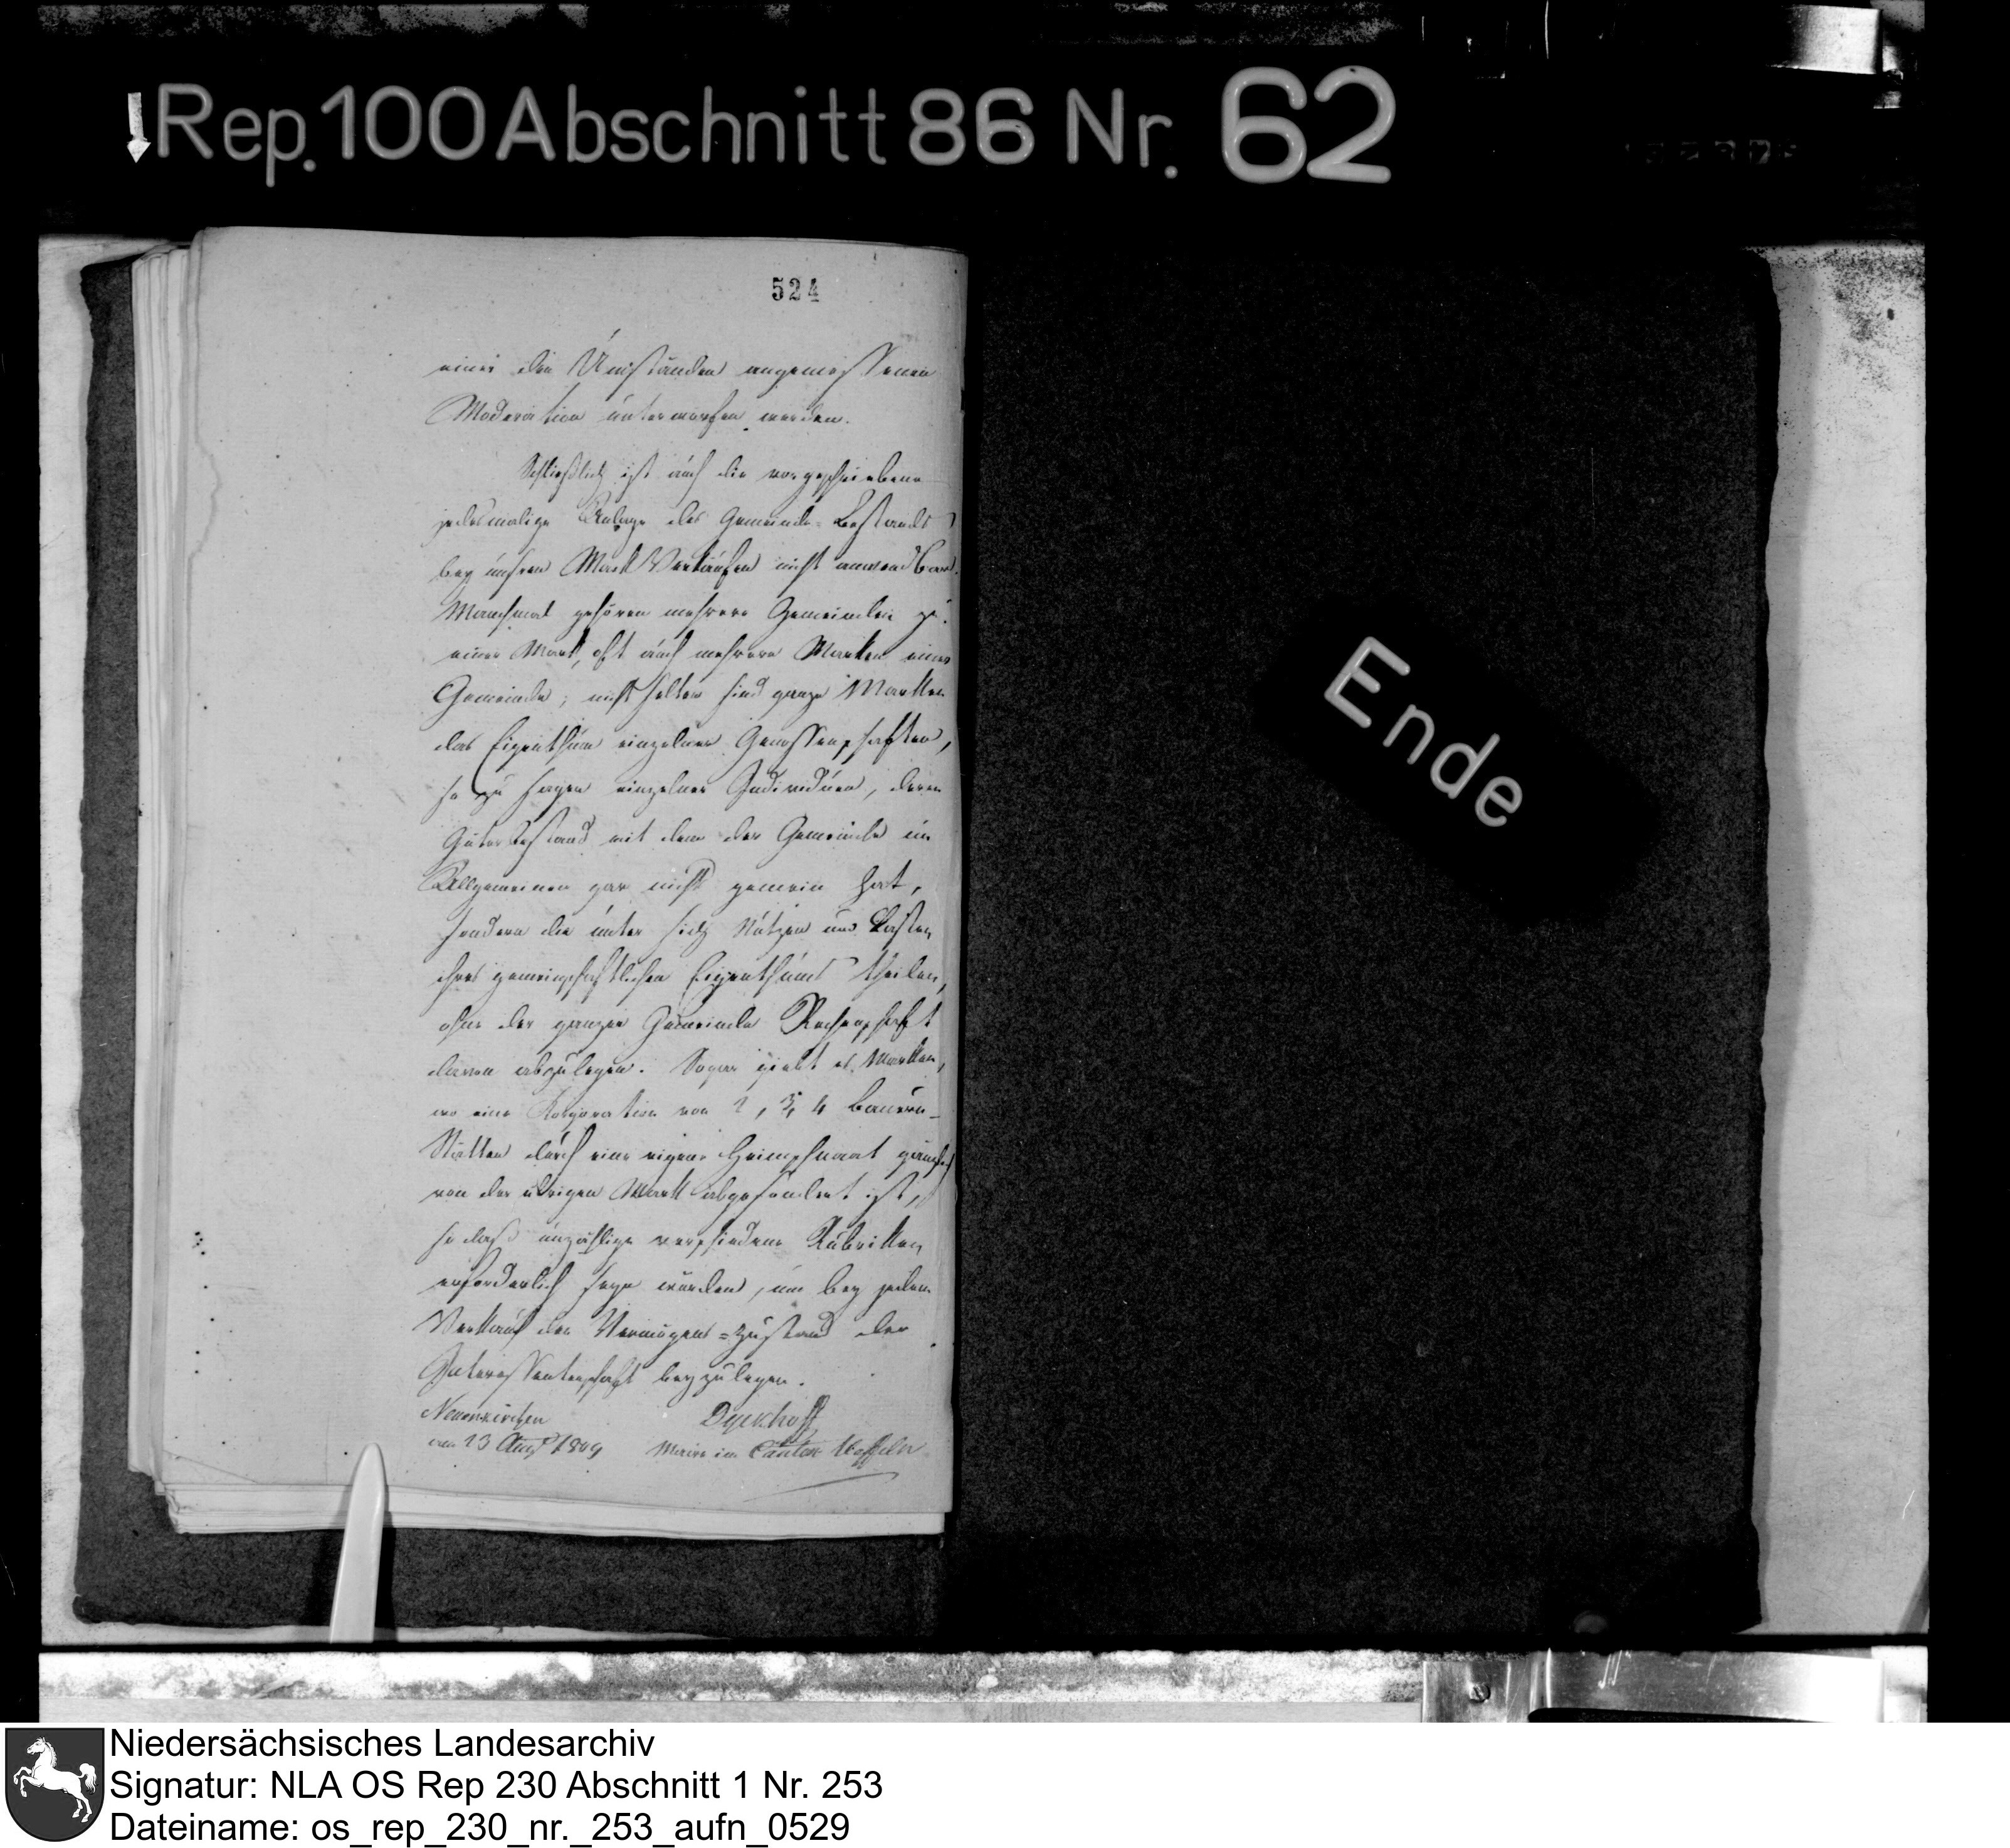 Rep. 100 Abschnitt 86 Nr. 62
524
einer den Umständen angemessenen
Moderation unterworfen werden.
Schließlich ist auch die vorgeschriebene
jedesmalige Anlage des Gemeinde-Bestands
bey unsren Mark Verkäufen nicht anwendbar.
Manchmal gehören mehrere Gemeinden zu
einer Mark, oft auch mehrere Marken einer
Gemeinde; nicht selten sind ganze Markken
das Eigenthum einzelner Genossenschaften,
so zu sagen einzelner Individuen, deren
Güterbestand mit dem der Gemeinde im
Allgemeinen gar nichts gemein hat,
sondern die unter sich Nutzen und Lasten
ihres gemeinschaftlichen Eigenthums theilen,
ohne der ganzen Gemeinde Rechenschaft
davon abzulegen. Sogar giebt es Markken,
wo eine Korporation von 2, 3, 4 Bauern-
Stätten durch eine eigene Heimschnaat gänzlich
von der übrigen Mark abgesondert ist,
so daß unzählige verschiedene Rubriken
erforderlich seyn würden, um bey jedem
Verkauf den Vermögens=Zustand der
Interessentenschaft beyzulegen.
Neuenkirchen
den 13 Aug 1809
Dyckhoff
Maire im Canton Ueffeln
Ende
Niedersächsisches Landesarchiv
Signatur: NLA OS Rep 230 Abschnitt 1 Nr. 253
Dateiname: os_rep_230_nr._253_aufn_0529